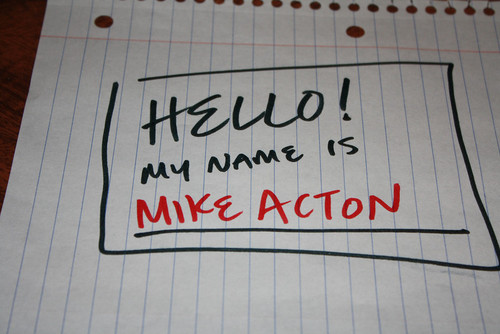 HELLO!
MY NAME IS
MIKE ACTON